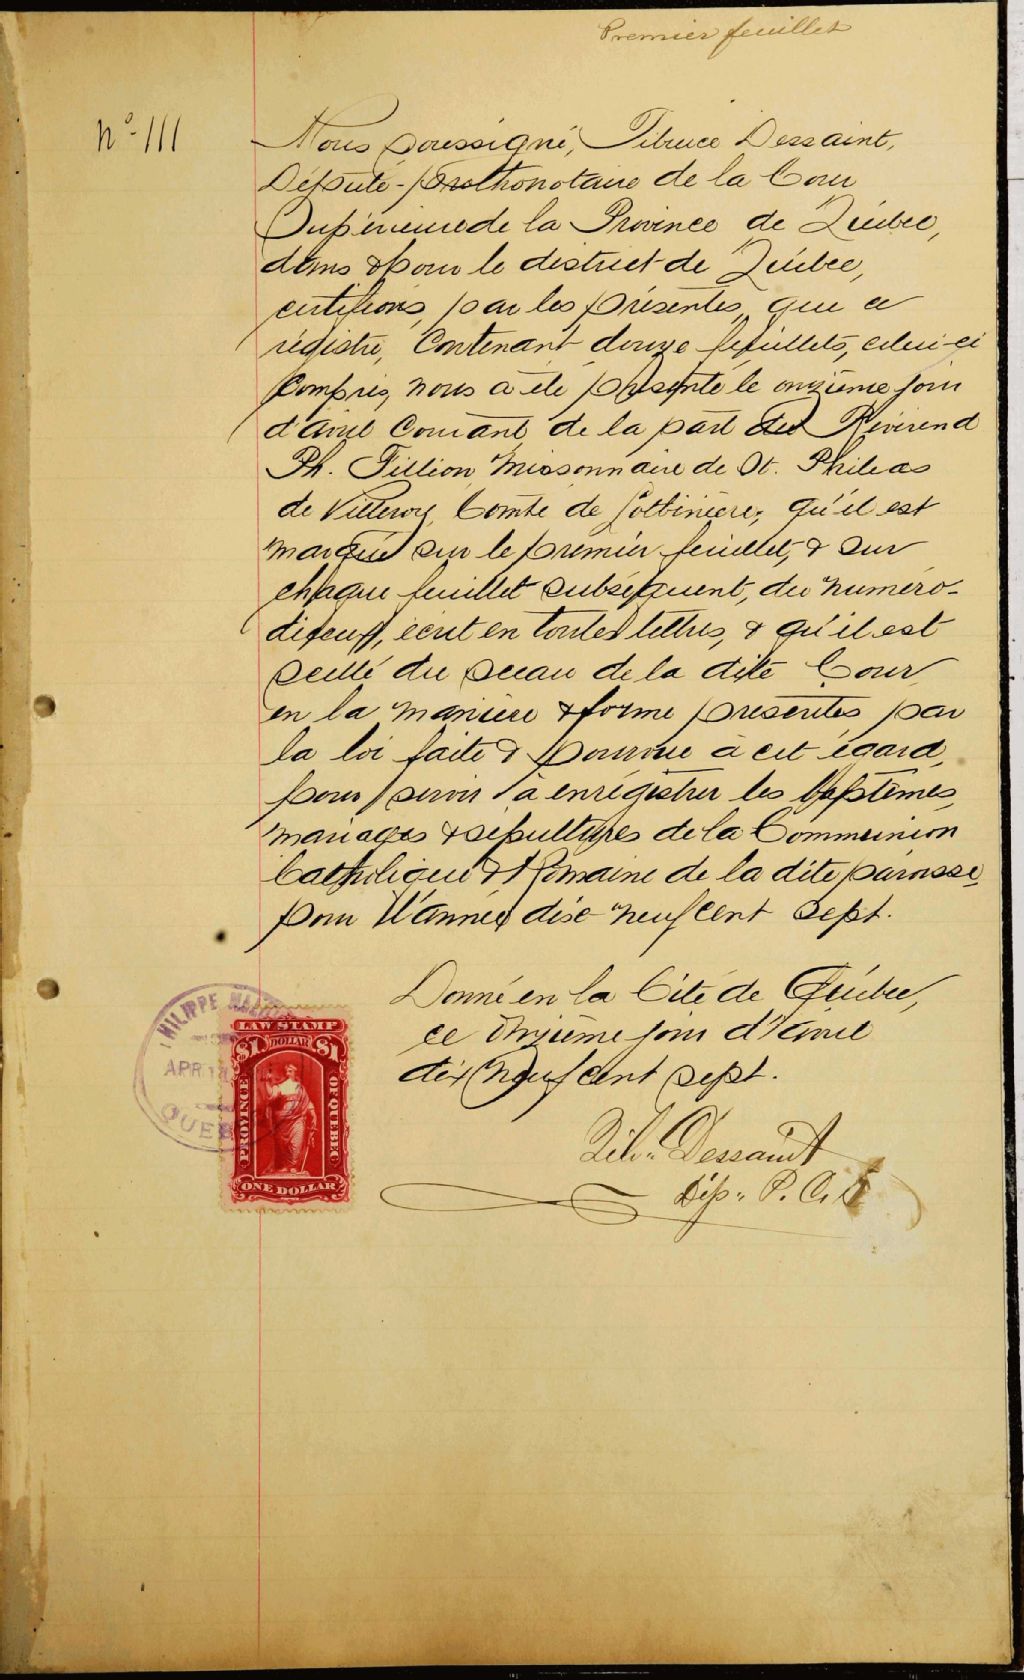 Premier feuillet
No 111
Nous soussigné, Tibruce Dessaint,
Député-prothonotaire de la Cour
Supérieure de la Province de Québec,
dans & pour le district de Québec,
certifions, par les présentes, que ce
régistre, Contenant douze feuillets, celui-ci
Compris, nous a été présenté le onzième jour
d'avril Courant, de la part du Révérend
Ph. Fillion Missonnaire de St. Phileas
de Villeroy, Comté de Lotbinière; qu'il est
marqué sur le premier feuillet, & sur
chaque feuillet subséquent, du numéro-
écrit en toutes lettres, & qu'il est
scellé du sceau de la dite Cour
en la manière & forme presentes par
la loi faite & pourvue à cet égard,
pour servir à enrégistrer les baptêmes,
mariages & sépultures de la Communion
Catholique & Romaine de la dite paroisse,
pour l'année dise neuf cent sept.
Donné en la Cité de Québec,
ce onzième jour d'avril
dix neuf cent sept.
Tib. Dessaint
Dép. P. C. S
PHILIPPE
APR
QUEB
LAW STAMP
$1 DOLLAR $1
PROVINCE OF QUEBEC
ONE DOLLAR